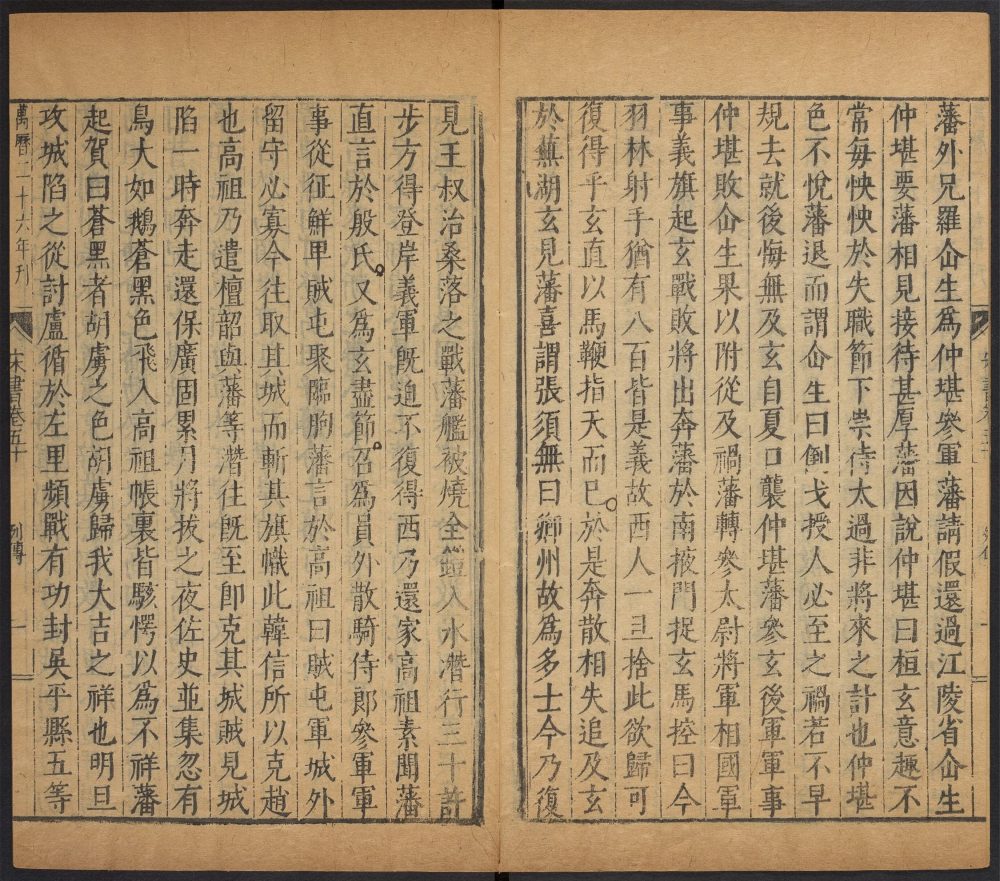 藩外兄羅仚生爲仲堪參軍藩請假還過江陵省仚生
仲堪要藩相見接待甚厚藩因說仲堪曰桓玄意趣不
常每怏怏於失職節下崇侍太過非將來之計也仲堪
色不悅藩退而謂仚生曰倒戈授人必至之禍若不早
規去就後悔無及玄自夏口襲仲堪藩參玄後軍軍事
仲堪敗仚生果以附從及禍藩轉參太尉將軍相國軍
事義旗起玄戰敗將出奔藩於南掖門捉玄馬控曰今
羽林射手猶有八百皆是義故西人一旦捨此欲歸可
復得乎玄直以馬鞭指天而已。於是奔散相失追及玄
於蕪湖玄見藩喜謂張須無曰鄉州故爲多士今乃復
見王叔治桑落之戰藩艦被燒全鎧入水潛行三十許
步方得登岸義軍旣迫不復得西乃還家高祖素聞藩
直言於殷氏。又爲玄盡節。召爲員外散騎侍郎參軍軍
事從征鮮卑賊屯聚臨朐藩言於高祖曰賊屯軍城外
留守必寡今往取其城而斬其旗幟此韓信所以克趙
也高祖乃遣檀韶與藩等潛往旣至卽克其城賊見城
陷一時奔走還保廣固累月將拔之夜佐史並集忽有
鳥大如鵝蒼黑色飛入高祖帳裏皆駭愕以爲不祥藩
起賀曰蒼黑者胡虜之色胡虜歸我大吉之祥也明旦
攻城陷之從討盧循於左里頻戰有功封吳平縣五等
萬曆二十六年刊
宋書卷五十
列傳
一